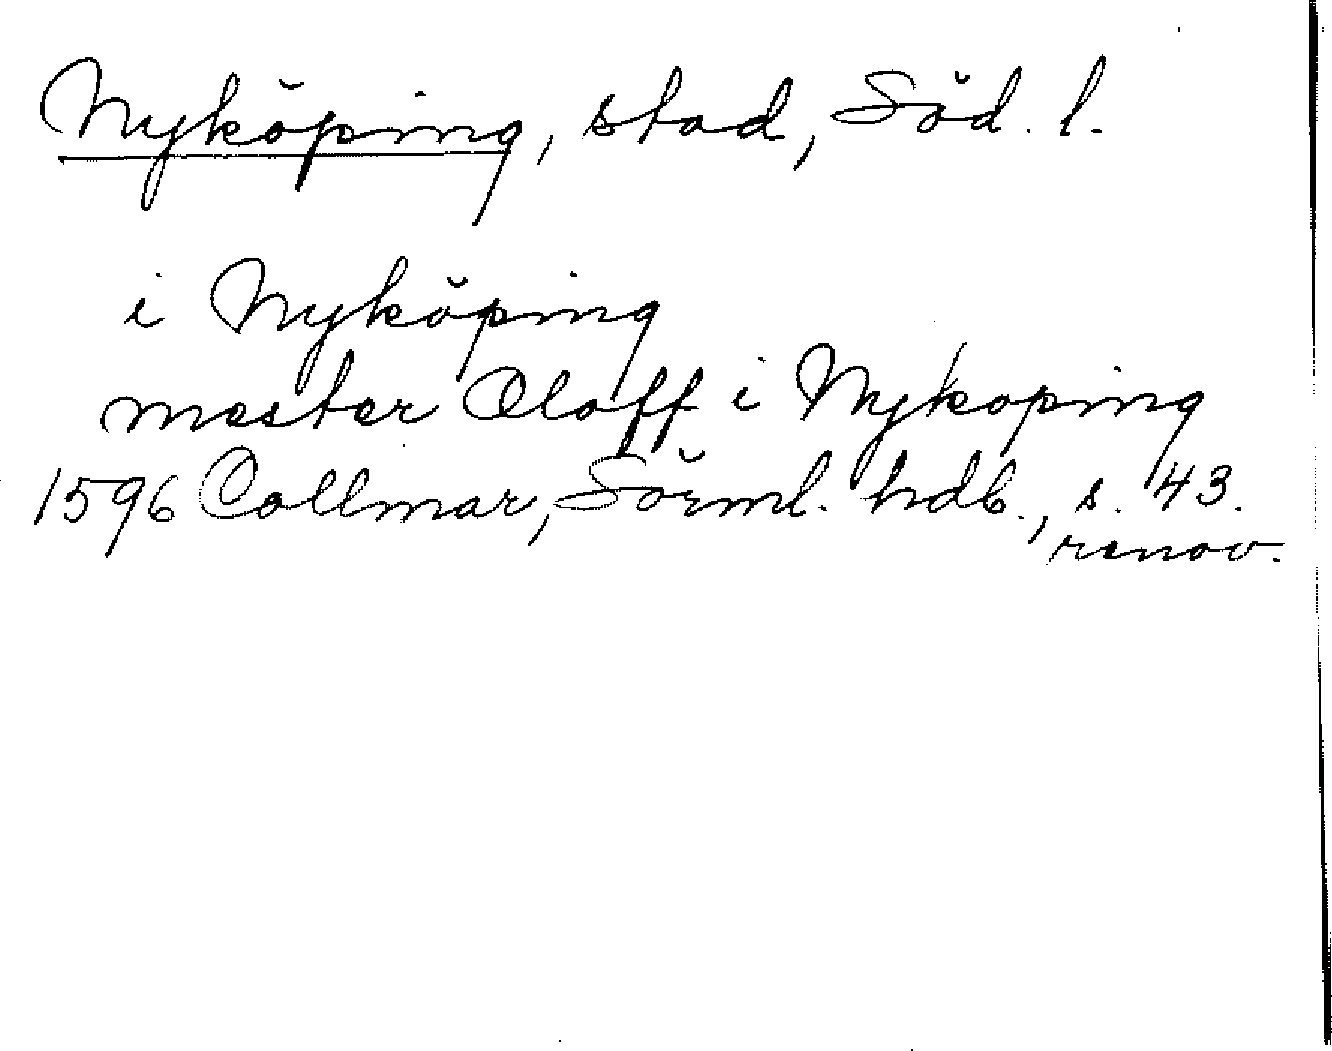 Nyköping, stad, Söd. l.
i Nyköping
mester Oloff i Nykoping
1596 Collmar, Sörml. hdb., s. 43.
renov.